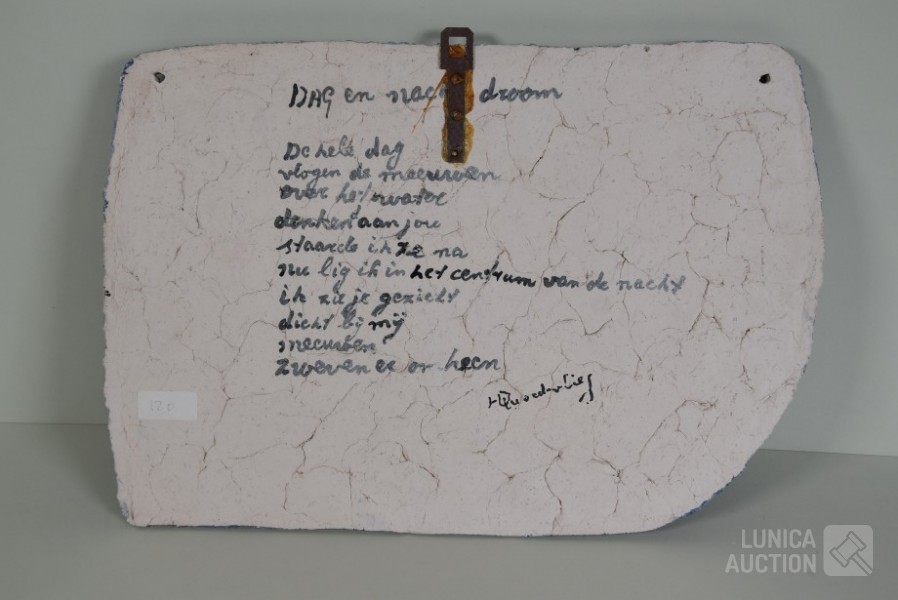 DAG en nacht droom
De hele dag
vlogen de meeuwen
over het water
denkend aan jou
staarde ik ze na
nu lig ik in het centrum van de nacht
ik zie je gezicht
dicht bij mij
meeuwen
zweven er om heen
LUNICA
AUCTION